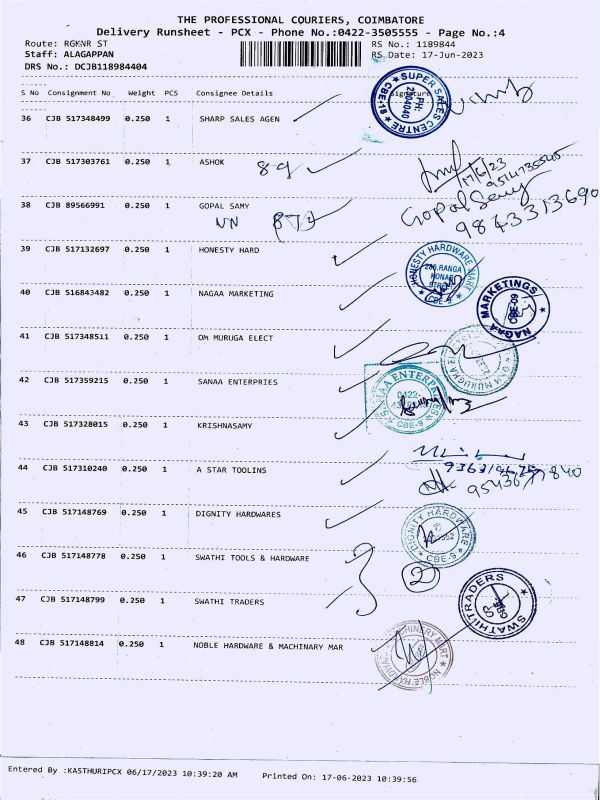 THE PROFESSIONAL COURIERS, COIMBATORE
Delivery Runsheet - PCX - Phone No.:0422-3505555 - Page No.:4
Route: RGKNR ST
RS No.: 1189844
Staff: ALAGAPPAN
RS Date: 17-Jun-2023
DRS No.: DCJB118984404
S No Consignment No Weight PCS Consignee Details Signature
36 CJB 517348499 0.250 1 SHARP SALES AGEN
SUPER SALES CENTRE CBE-9
37 CJB 517303761 0.250 1 ASHOK 89
17/6/23
38 CJB 89566991 0.250 1 GOPAL SAMY
Gopal Samy
VN
9843313690
39 CJB 517132697 0.250 1 HONESTY HARD
HONESTY HARDWARE MART
CBE-9
40 CJB 516843482 0.250 1 NAGAA MARKETING
NAGAA MARKETINGS CBE-09
41 CJB 517348511 0.250 1 OM MURUGA ELECT
42 CJB 517359215 0.250 1 SANAA ENTERPRIES
SANAA ENTERPRISES
0422-
CBE-9
43 CJB 517328015 0.250 1 KRISHNASAMY
44 CJB 517310240 0.250 1 A STAR TOOLINS
45 CJB 517148769 0.250 1 DIGNITY HARDWARES
DIGNITY HARDWARE
CBE-9
46 CJB 517148778 0.250 1 SWATHI TOOLS & HARDWARE
3 2
47 CJB 517148799 0.250 1 SWATHI TRADERS
SWATHI TRADERS
48 CJB 517148814 0.250 1 NOBLE HARDWARE & MACHINARY MAR
Entered By :KASTHURIPCX 06/17/2023 10:39:20 AM Printed On: 17-06-2023 10:39:56